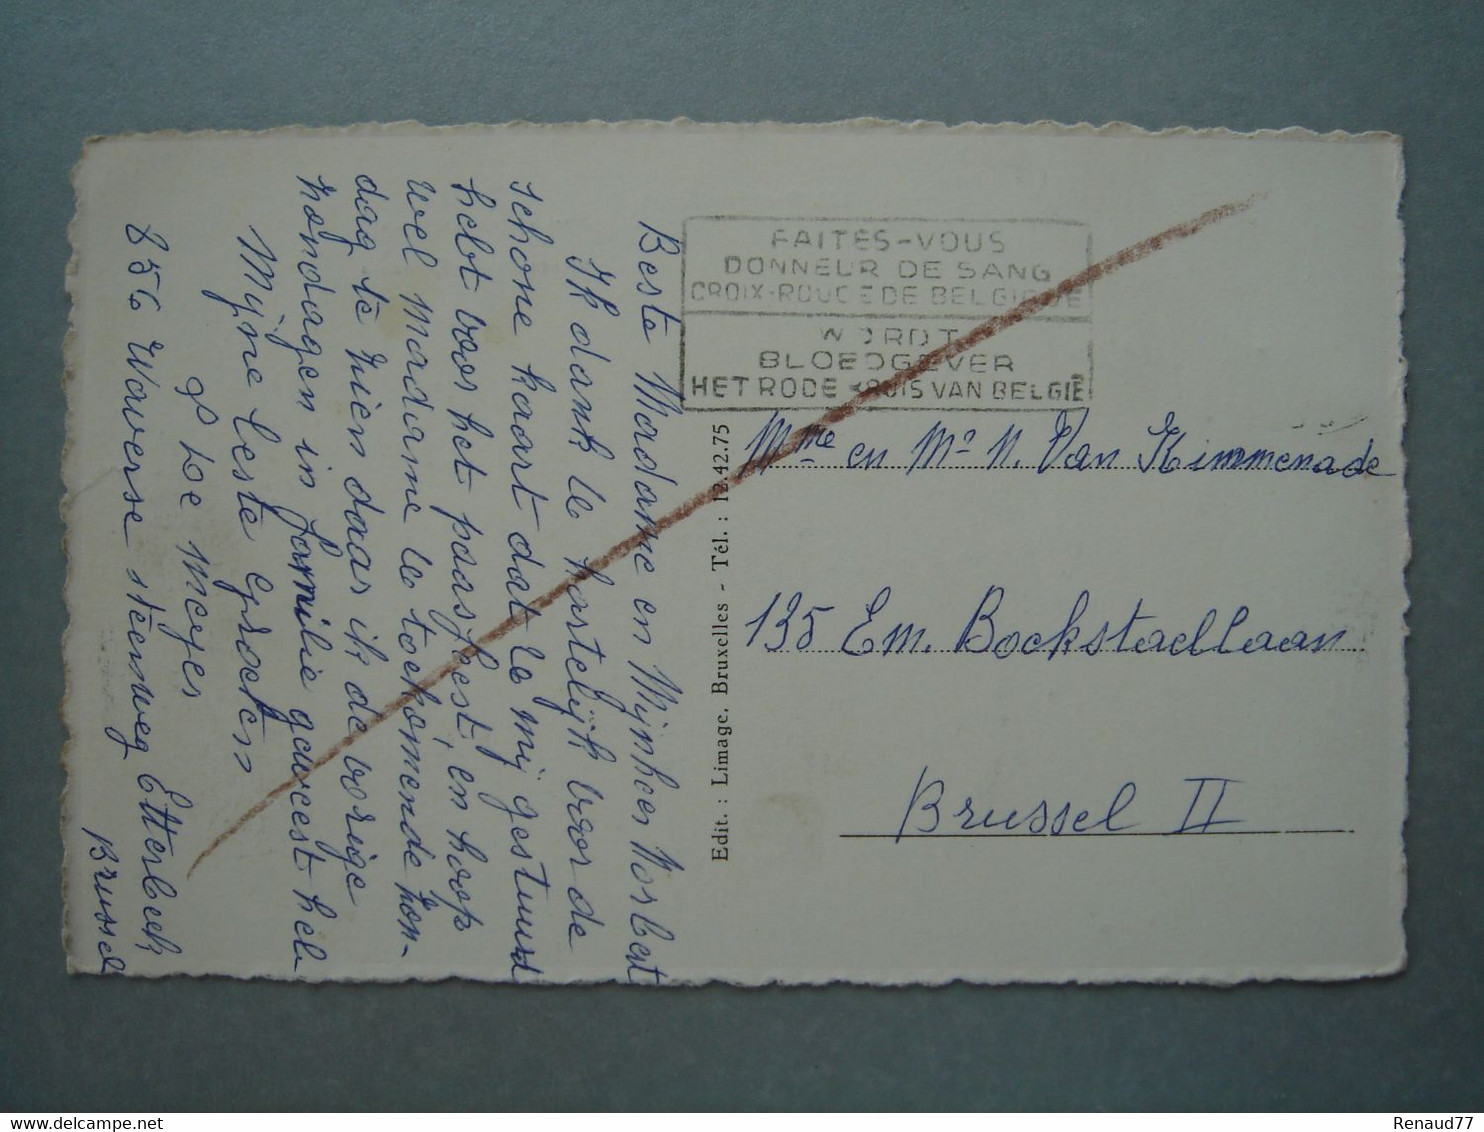 Beste Madame en Mijnheer Norbert
Ik dank le hartelijk voor de
schone kaart dat le mij gestuurd
hebt voor het paasfeest, en hoop
wel madame le toekomende hon-
dag te hien daar ik de vorige
hondagen in familie geweest heb
Mijne beste groeten
De Meyer
856 Waverse steenweg Etterbeek
Brussel
FAITES-VOUS
DONNEUR DE SANG
CROIX-ROUGE DE BELGIQUE
WORDT
BLOEDGEVER
HET RODE KRUIS VAN BELGIË
Edit. : Limage. Bruxelles - Tél. : 12.42.75
Mme en Mr N. Van Kimmenade
135 Em. Bockstaellaan
Brussel II
Renaud77
delcampe.net